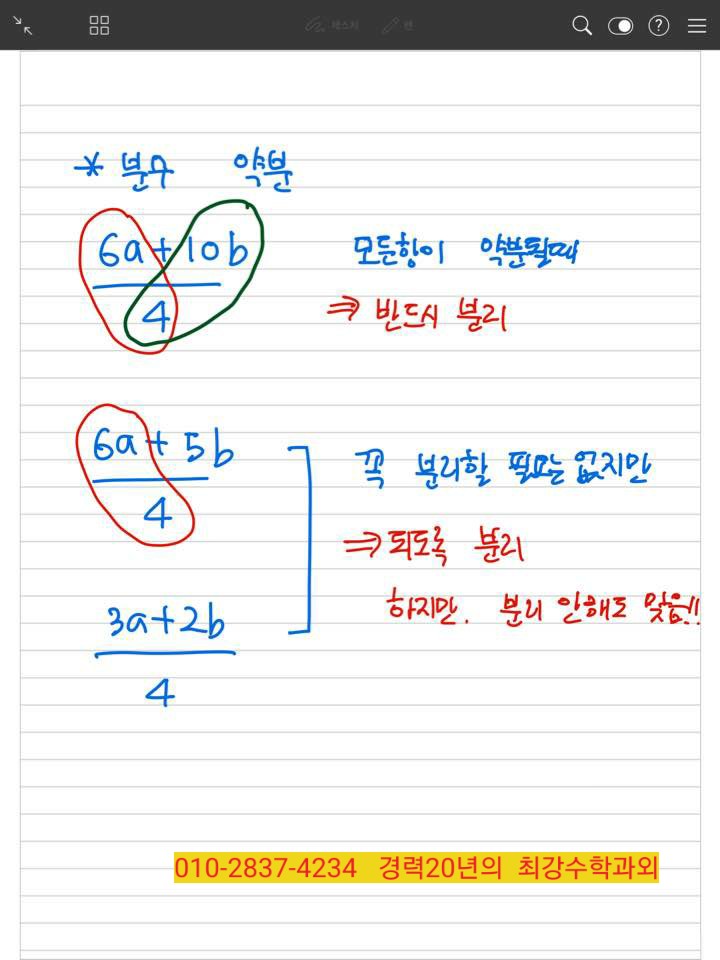 텍스처 펜
* 분수 약분
6a+10b
4
모든항이 약분될때
⇒ 반드시 분리
6a+5b
4
꼭 분리할 필요는 없지만
⇒ 되도록 분리
하지만. 분리 안해도 맞음!!
3a+2b
4
010-2837-4234 경력20년의 최강수학과외